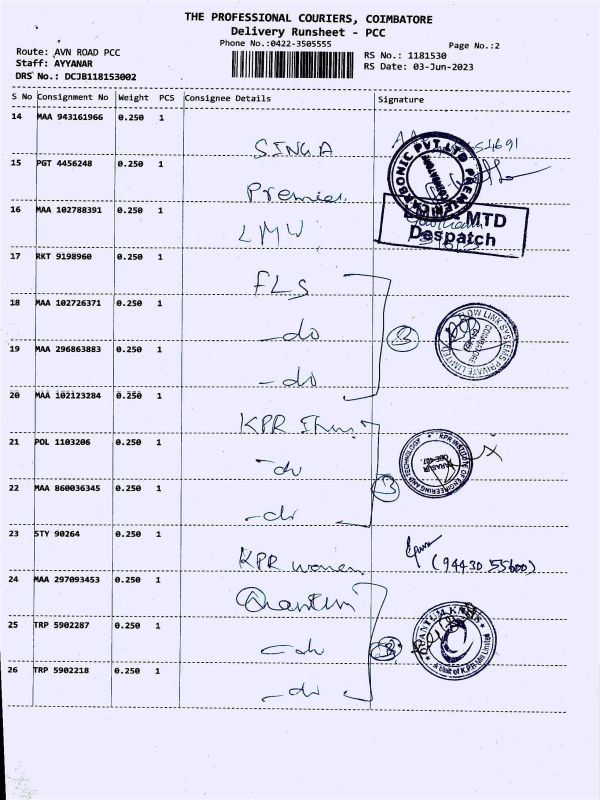 THE PROFESSIONAL COURIERS, COIMBATORE
Delivery Runsheet - PCC
Phone No.:0422-3505555
Page No.:2
Route: AVN ROAD PCC
Staff: AYYANAR
DRS No.: DCJB118153002
RS No.: 1181530
RS Date: 03-Jun-2023
S No Consignment No Weight PCS Consignee Details Signature
14 MAA 943161966 0.250 1
SINGA
15 PGT 4456248 0.250 1
Premier
16 MAA 102788391 0.250 1
LMW
MTD
Despatch
17 RKT 9198960 0.250 1
FLS
18 MAA 102726371 0.250 1
-do
FLOW LINK SYSTEMS PRIVATE LIMITED
COIMBATORE
19 MAA 296863883 0.250 1
-do
20 MAA 102123284 0.250 1
KPR
21 POL 1103206 0.250 1
-do
KPR INSTITUTE OF ENGINEERING AND TECHNOLOGY
22 MAA 860036345 0.250 1
-do
23 STY 90264 0.250 1
KPR women
(94430 55600)
24 MAA 297093453 0.250 1
Quantum
25 TRP 5902287 0.250 1
-do
QUANTUM KNITS
A Unit of K.P.R Mill Limited
26 TRP 5902218 0.250 1
-do